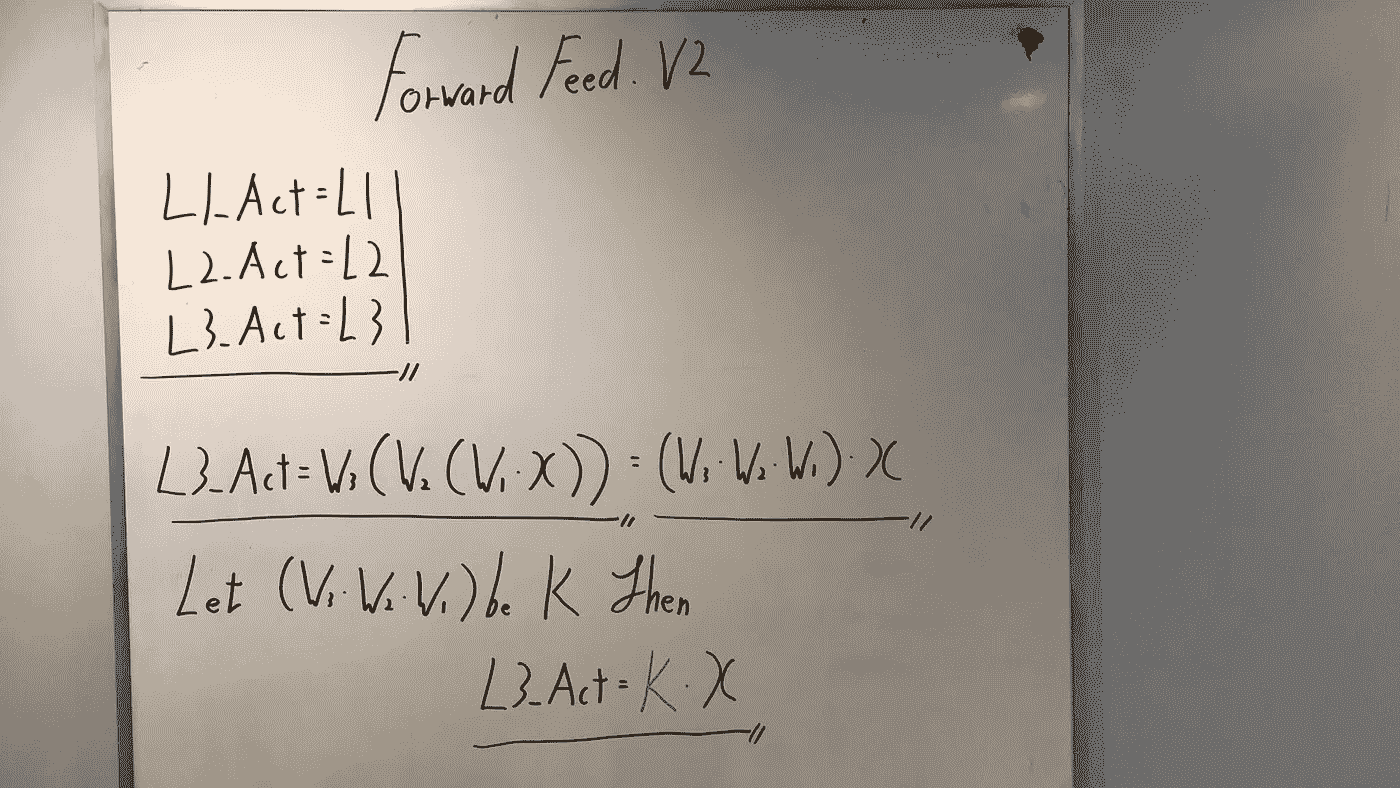 Forward Feed. V2
L1_Act=L1
L2_Act=L2
L3_Act=L3
L3_Act=W₃(W₂(W₁·X))=(W₃·W₂·W₁)·X
Let (W₃·W₂·W₁)be K Then
L3_Act=K·X